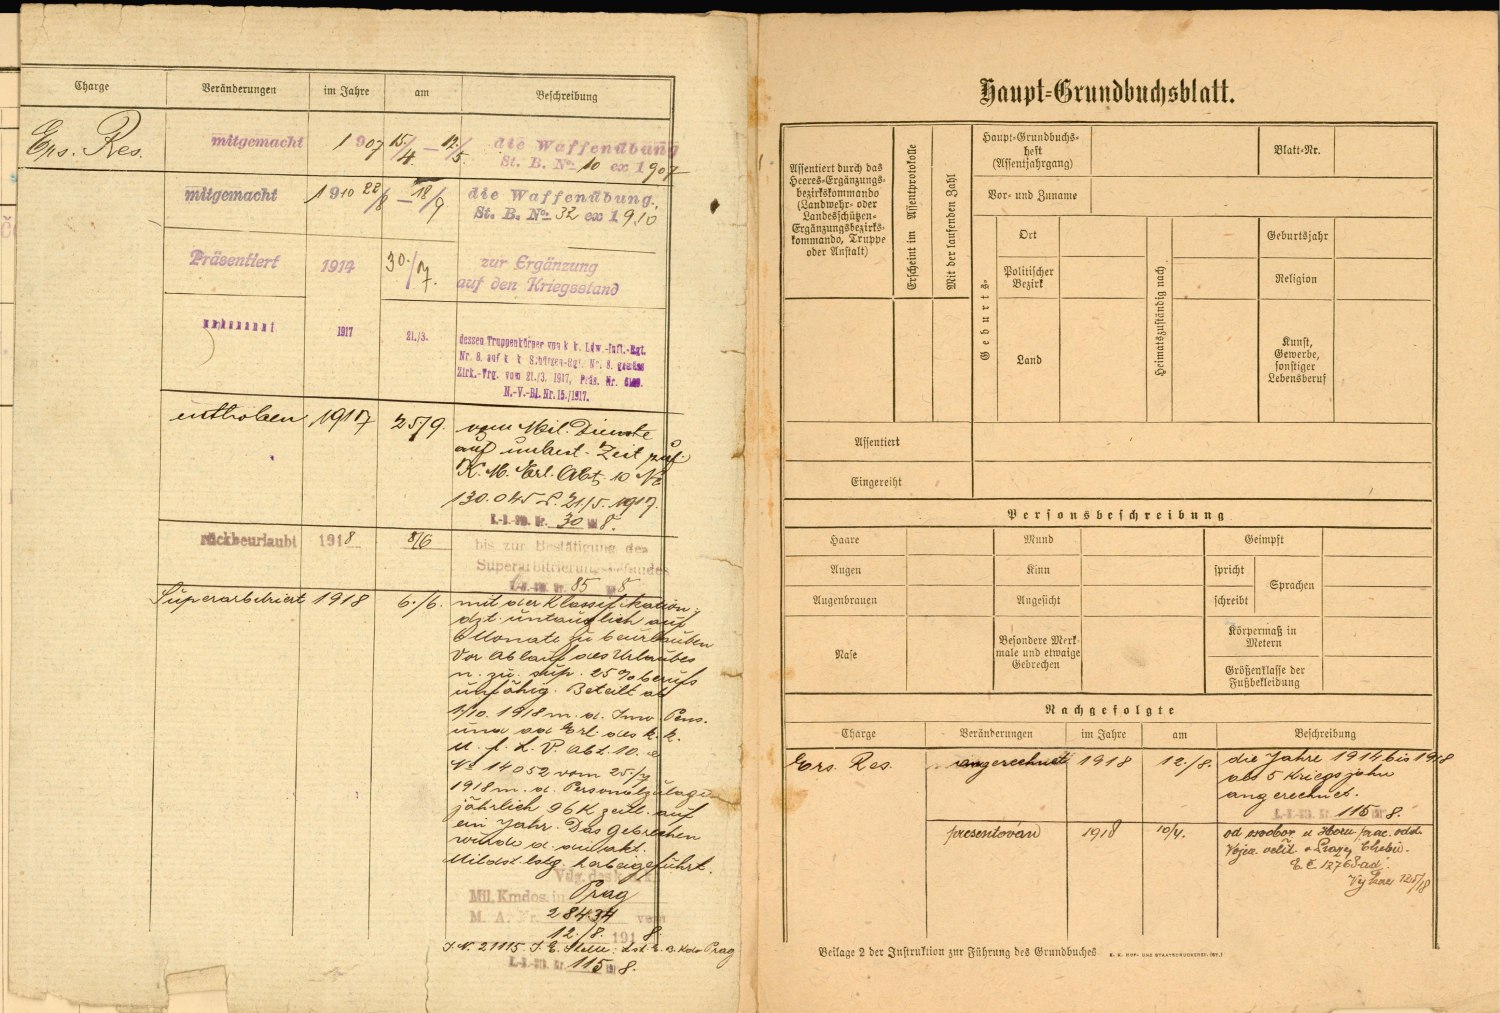 Charge Veränderungen im Jahre am Beschreibung
Ers. Res. mitgemacht 1907 15./4. — 12./5. die Waffenübung
St. B. No. 10 ex 1907
mitgemacht 1910 22/8 — 18/9 die Waffenübung.
St. B. No. 32 ex 1910
Präsentiert 1914 30./7. zur Ergänzung
auf den Kriegsstand
1917 21./3. dessen Truppenkörper von k. k. Ldw.-Inft.-Rgt.
Nr. 8. auf k. k. Schützen-Rgt. Nr. 8. gemäss
Zirk.-Vrg. vom 21./3. 1917, Präs. Nr.
N.-V.-Bl. Nr. 15./1917.
enthoben 1917 25/9. vom Mil. Dienste
auf unbest. Zeit zuf.
K. M. Erl. Abt. 10 No
130.045 21./5. 1917.
30 8.
rückbeurlaubt 1918 8/6 bis zur Bestätigung des
Superarbitrierungsbefundes
85 8
Superarbitriert 1918 6./6. mit der Klassifikation:
dzt. untauglich auf
6 Monate zu beurlauben
Vor Ablauf des Urlaubes
n. zu sup. 25% berufs
unfähig. Beteilt ab
1/10. 1918 m. d. Inv. Pens.
und Erl. des k. k.
M. f. L. V. Abt. 10.
No 14052 vom 25./7
1918 m. d. Personalzulage
jährlich 96 K zeitl. auf
ein Jahr. Das Gebrechen
wurde d. d. akt.
Mildst. herbeigeführt.
Vdg. des k. u. k.
Mil. Kmdos. in Prag
M. A. Nr. 28434 vom
12./8. 1918.
J. N. 21115. Prag
115 8.
Haupt-Grundbuchsblatt.
Assentiert durch das
Heeres-Ergänzungs-
bezirkskommando
(Landwehr- oder
Landesschützen-
Ergänzungsbezirks-
kommando, Truppe
oder Anstalt)
Erscheint im Assentprotokolle
Mit der laufenden Zahl
Haupt-Grundbuchs-
heft
(Assentjahrgang)
Blatt-Nr.
Vor- und Zuname
Geburts-
Ort
Politischer
Bezirk
Land
Heimatszuständig nach
Geburtsjahr
Religion
Kunst,
Gewerbe,
sonstiger
Lebensberuf
Assentiert
Eingereiht
Personsbeschreibung
Haare Mund Geimpft
Augen Kinn spricht Sprachen
Augenbrauen Angesicht schreibt
Nase
Besondere Merk-
male und etwaige
Gebrechen
Körpermaß in
Metern
Größenklasse der
Fußbekleidung
Nachgefolgte
Charge Veränderungen im Jahre am Beschreibung
Ers. Res. angerechnet 1918 12./8. die Jahre 1914 bis 1918
als 5 Kriegsjahre
angerechnet.
115 8.
presentován 1918 10/4.
Vojen. velit. v Praze,
Beilage 2 der Instruktion zur Führung des Grundbuches K. K. HOF- UND STAATSDRUCKEREI. (ST.)